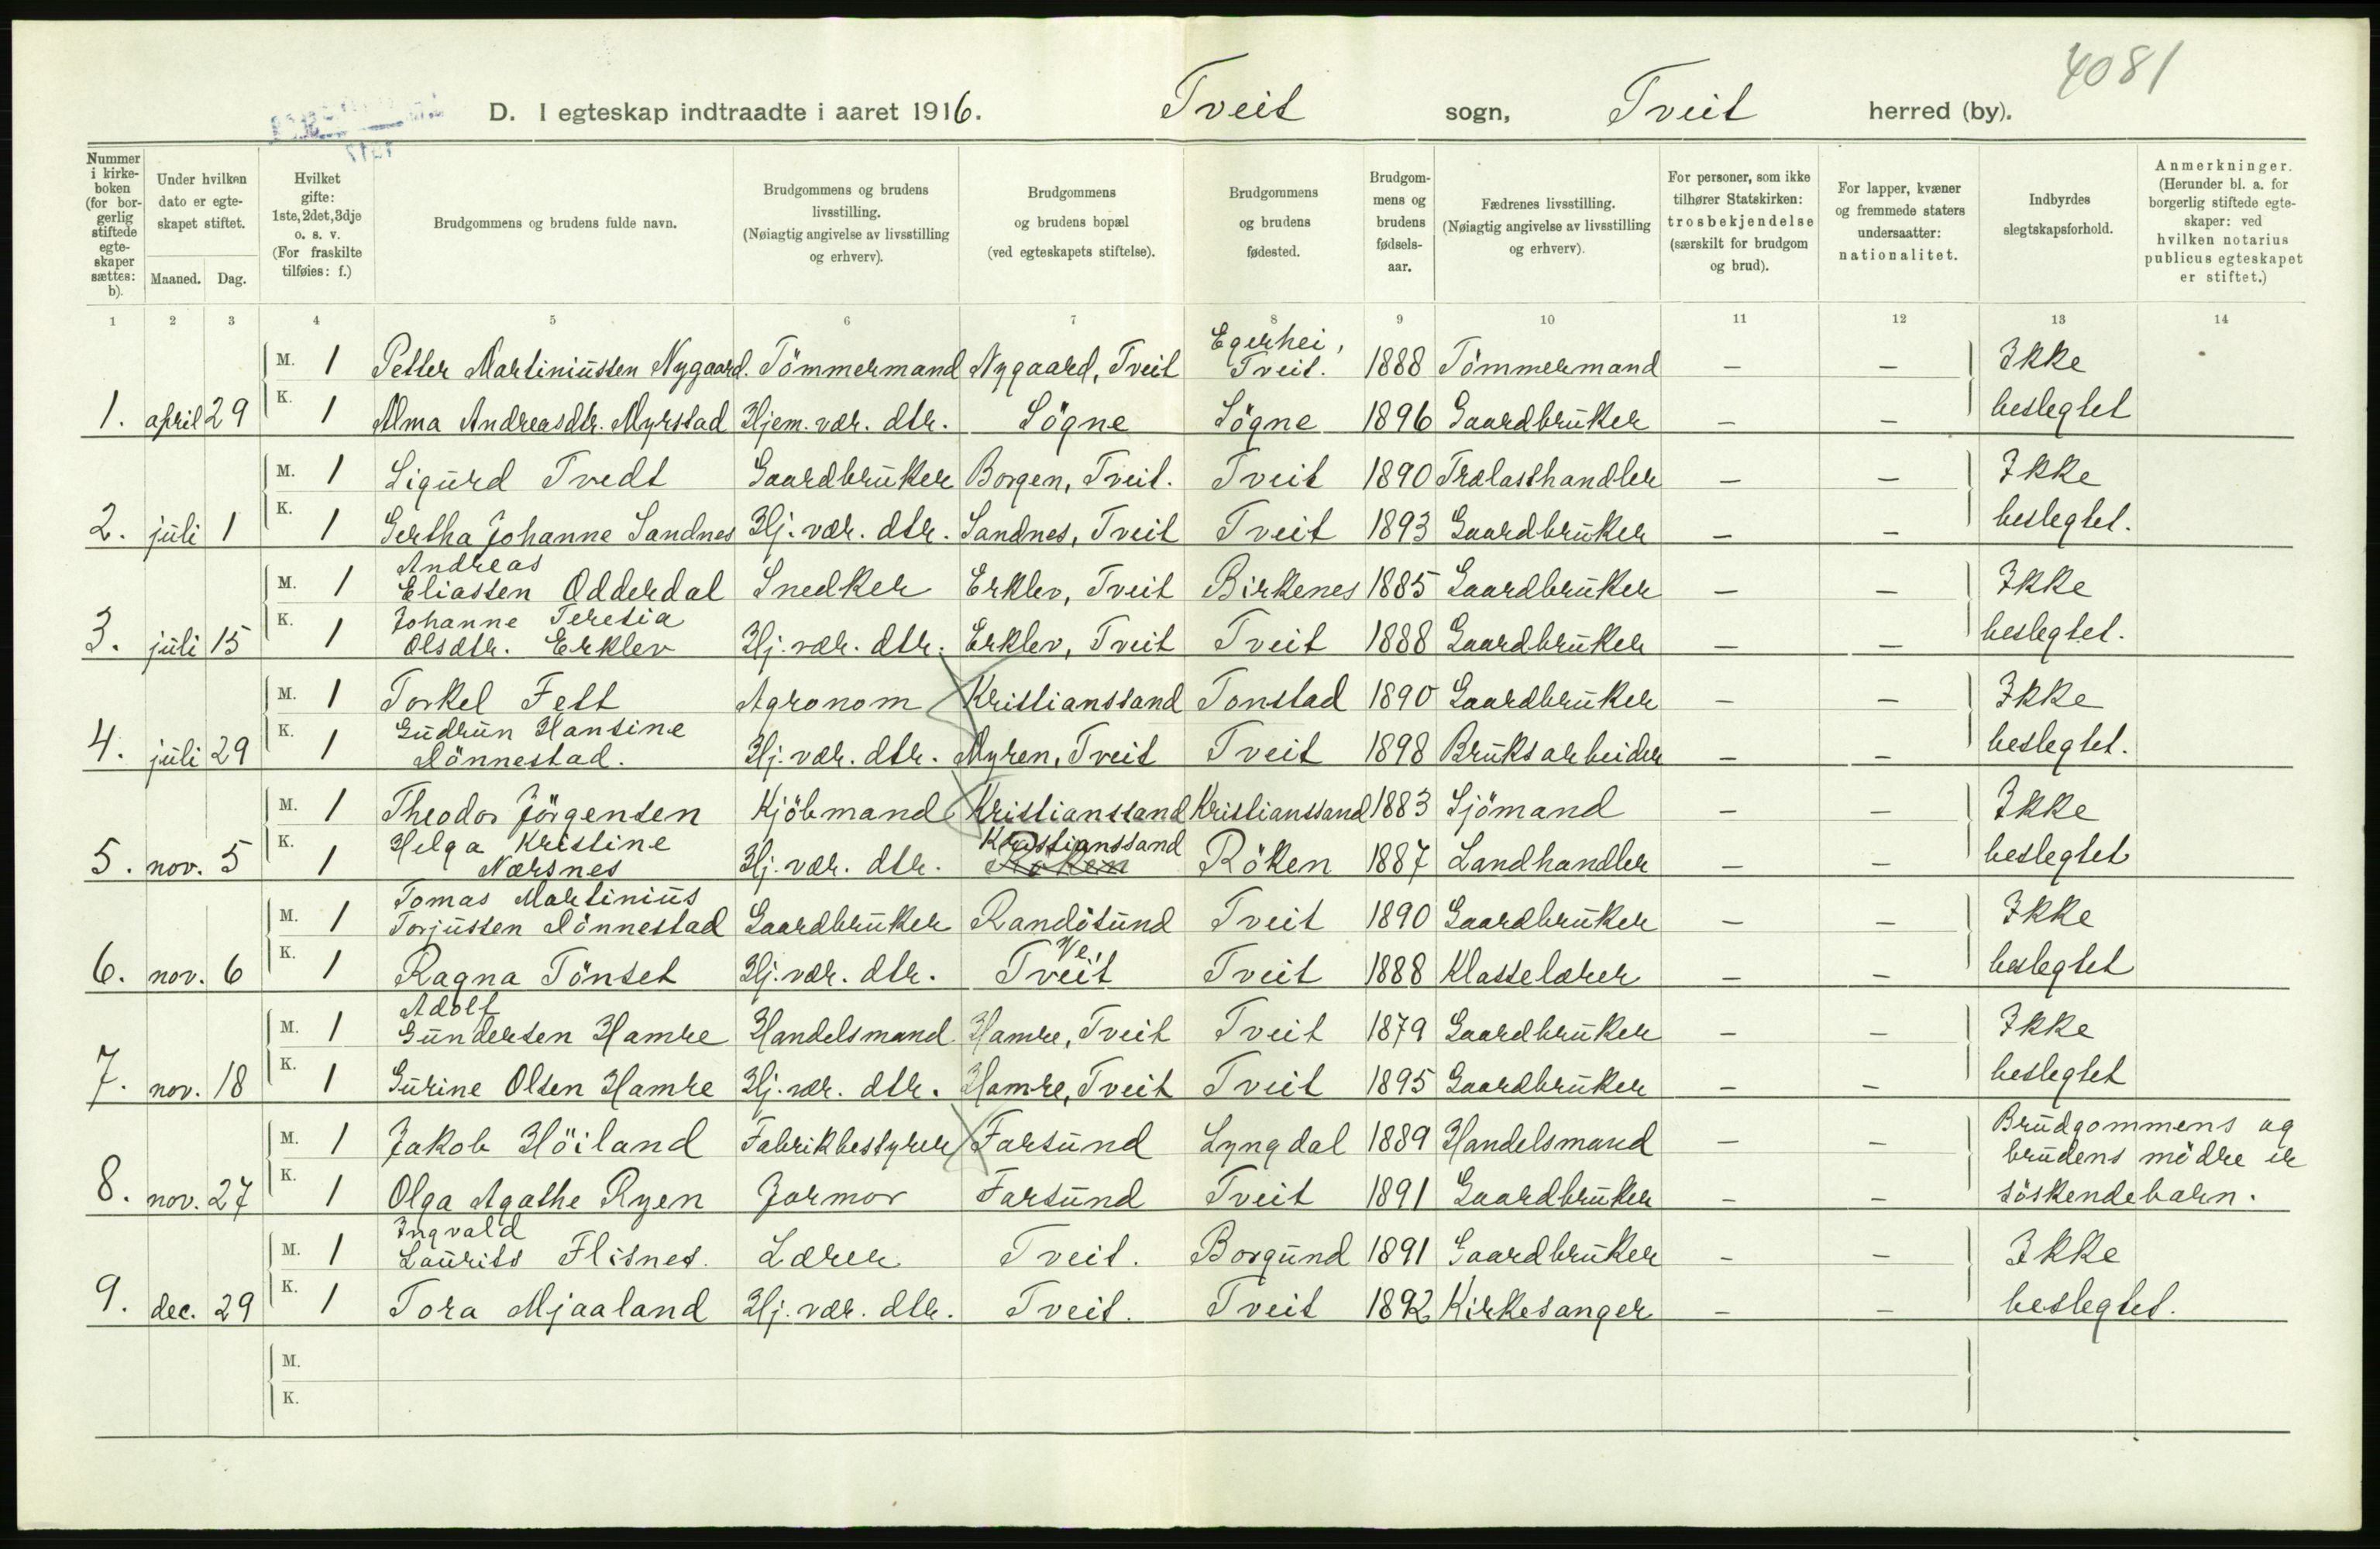 4081
D. I egteskap indtraadte i aaret 1916. Tveit sogn, Tveit herred (by).
Nummer i kirke-boken (for bor-gerlig stiftede egte-skaper sættes: b).
Under hvilken dato er egte-skapet stiftet.
Maaned. Dag.
Hvilket gifte: 1ste, 2det, 3dje o. s. v. (For fraskilte tilføies: f.)
Brudgommens og brudens fulde navn.
Brudgommens og brudens livsstilling. (Nøiagtig angivelse av livsstilling og erhverv).
Brudgommens og brudens bopæl (ved egteskapets stiftelse).
Brudgommens og brudens fødested.
Brudgom-mens og brudens fødsels-aar.
Fædrenes livsstilling. (Nøiagtig angivelse av livsstilling og erhverv).
For personer, som ikke tilhører Statskirken: trosbekjendelse (særskilt for brudgom og brud).
For lapper, kvæner og fremmede staters undersaatter: nationalitet.
Indbyrdes slegtskapsforhold.
Anmerkninger. (Herunder bl. a. for borgerlig stiftede egte-skaper: ved hvilken notarius publicus egteskapet er stiftet.)
1 2 3 4 5 6 7 8 9 10 11 12 13 14
M. 1 Petter Martiniussen Nygaard. Tömmermand Nygaard, Tveit Egerhei, Tveit. 1888 Tömmermand – – Ikke
1. april 29 K. 1 Alma Andreasdtr. Myrstad Hjem. vær. dtr. Sögne Sögne 1896 Gaardbruker – – beslegtet
M. 1 Sigurd Tvedt Gaardbruker Borgen, Tveit. Tveit 1890 Trælasthandler – – Ikke
2. juli 1 K. 1 Gertha Johanne Sandnes Hj. vær. dtr. Sandnes, Tveit Tveit 1893 Gaardbruker – – beslegtet.
M. 1 Andreas Eliassen Odderdal Snedker Erklev, Tveit Birkenes 1885 Gaardbruker – – Ikke
3. juli 15 K. 1 Johanne Teresia Olsdtr. Erklev Hj. vær. dtr. Erklev, Tveit Tveit 1888 Gaardbruker – – beslegtet.
M. 1 Torkel Fett Agronom Kristianssand Tonstad 1890 Gaardbruker – – Ikke
4. juli 29 K. 1 Gudrun Hansine Dönnestad. Hj. vær. dtr. Myren, Tveit Tveit 1898 Bruksarbeider – – beslegtet.
M. 1 Theodor Jörgensen Kjöbmand Kristianssand Kristianssand 1883 Sjömand – – Ikke
5. nov. 5 K. 1 Helga Kristine Nærsnes Hj. vær. dtr. Kristianssand Röken Röken 1887 Landhandler – – beslegtet
M. 1 Tomas Martinius Torjussen Dönnestad Gaardbruker Randösund Tveit 1890 Gaardbruker – – Ikke
6. nov. 6 K. 1 Ragna Tönset Hj. vær. dtr. Ve, Tveit Tveit 1888 Klasselærer – – beslegtet
M. 1 Adolf Gundersen Hamre Handelsmand Hamre, Tveit Tveit 1879 Gaardbruker – – Ikke
7. nov. 18 K. 1 Gurine Olsen Hamre Hj. vær. dtr. Hamre, Tveit Tveit 1895 Gaardbruker – – beslegtet
M. 1 Jakob Höiland Fabrikbestyrer Farsund Lyngdal 1889 Handelsmand – – Brudgommens og brudens mödre er
8. nov. 27 K. 1 Olga Agathe Ryen Jormor Farsund Tveit 1891 Gaardbruker – – söskendebarn.
M. 1 Ingvald Laurits Flisnes. Lærer Tveit. Borgund 1891 Gaardbruker – – Ikke
9. dec. 29 K. 1 Tora Mjaaland Hj. vær. dtr. Tveit. Tveit 1892 Kirkesanger – – beslegtet.
M.
K.